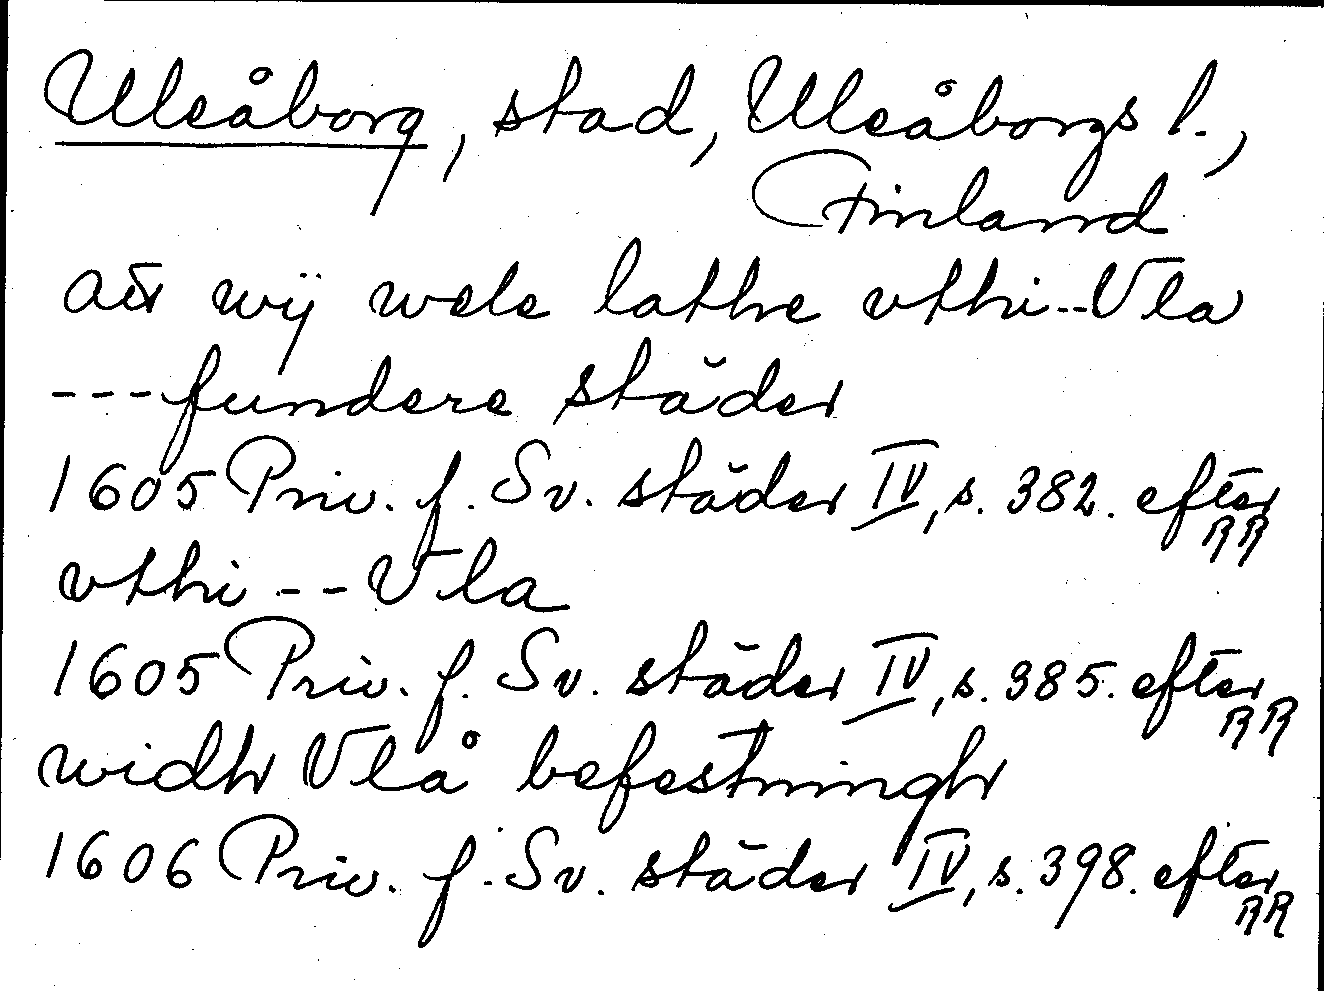 Uleåborg, stad, Uleåborgs l.,
Finland
att wij wele lathe vthi--Vla
---fundere städer
1605 Priv. f. Sv. städer IV, s. 382. efter RR
vthi --Vla
1605 Priv. f. Sv. städer IV, s. 385. efter RR
widh Vlå befestningh
1606 Priv. f. Sv. städer IV, s. 398. efter RR